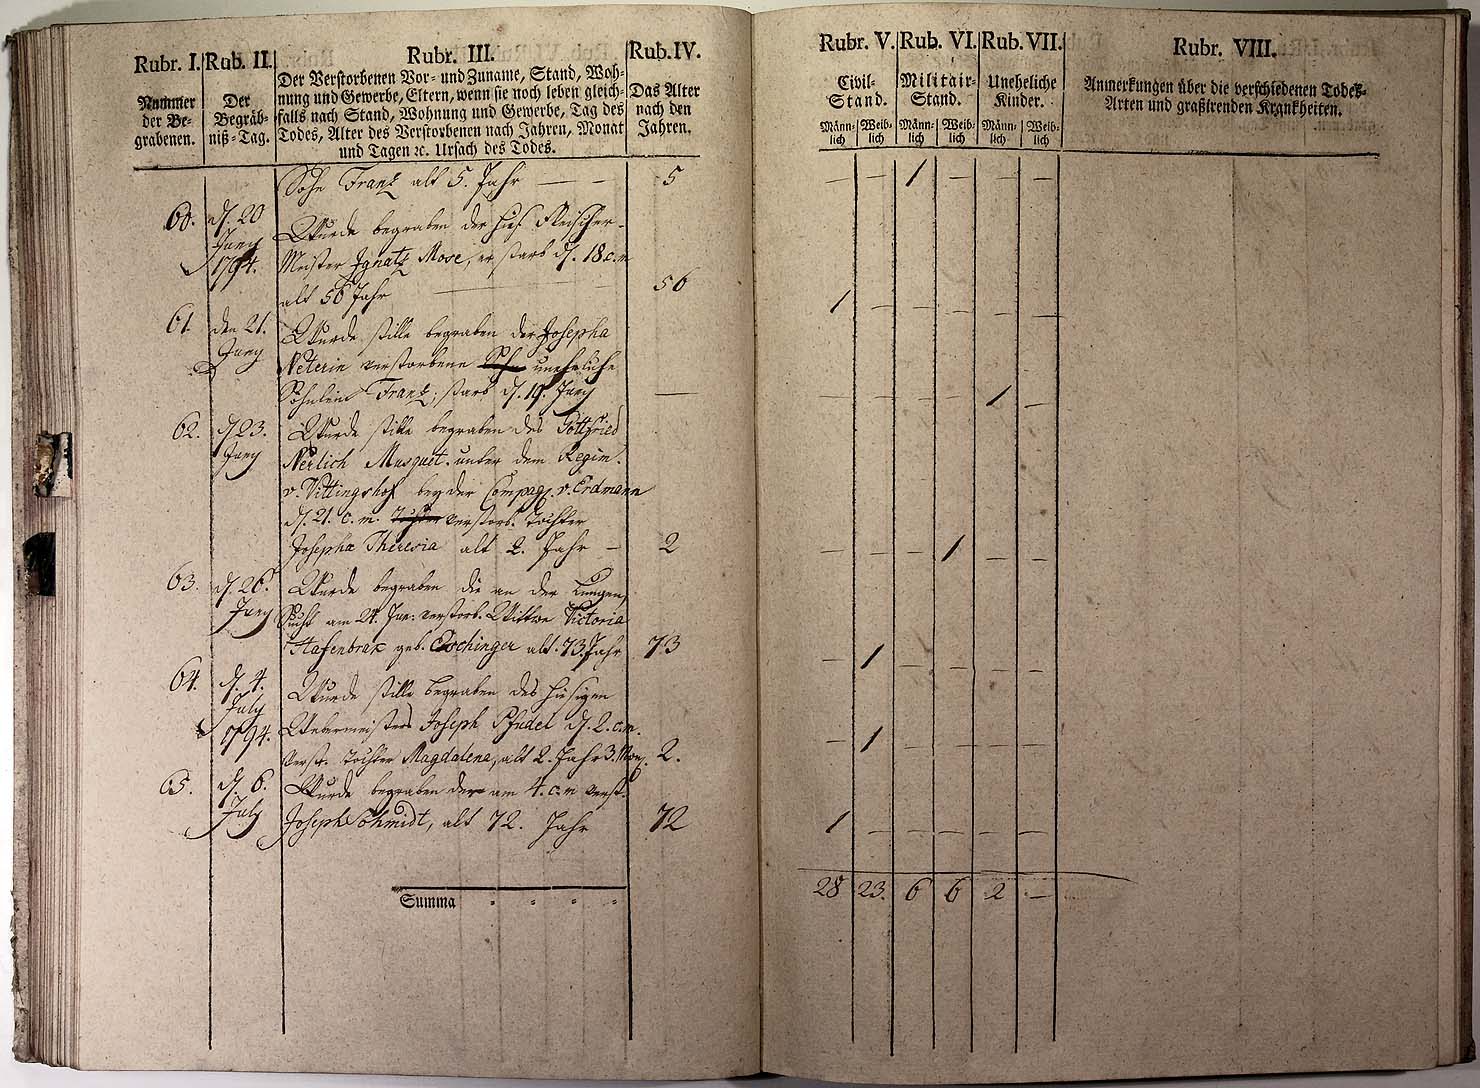 Rubr. I. Rub. II. Rubr. III. Rub. IV.
Nummer der Be- grabenen.
Der Begräb- niß-Tag.
Der Verstorbenen Vor- und Zuname, Stand, Woh-
nung und Gewerbe, Eltern, wenn sie noch leben gleich-
falls nach Stand, Wohnung und Gewerbe, Tag des
Todes, Alter des Verstorbenen nach Jahren, Monat
und Tagen ꝛc. Ursach des Todes.
Das Alter nach den Jahren.
Sohn Frantz alt 5. Jahr — — 5
60. d. 20 Juny 1794. Wurde begraben der hies. Fleischer-
Meister Ignatz Mose, er starb d. 18 c. m
alt 56 Jahr 56
61. den 21. Juny Wurde stille begraben der Josepha
Neterin verstorbene uneheliche
Söhnlein Frantz; starb d. 19. Juny —
62. d. 23. Juny Wurde stille begraben des Gottfried
Nerlich Musquet. unter dem Regim.
v. Vittingshof bey der Compag. v. Erdmann
d. 21. c. m. verstorb. Tochter
Josepha Theresia alt 2. Jahr — 2
63. d. 26. Juny Wurde begraben die an der Lungen
Sucht am 24. Jun: verstorb. Wittwe Victoria
Hafenbrak geb. alt. 73. Jahr 73
64. d. 4. July 1794. Wurde stille begraben des hiesigen
Webermeisters Joseph Pfudel d. 2. c. m.
verst. Tochter Magdalena, alt 2. Jahr 3. Mon. 2.
65. d. 6. July Wurde begraben der am 4. c. m verst.
Joseph Schmidt, alt 72. Jahr 72
Summa
Rubr. V. Rub. VI. Rub. VII. Rubr. VIII.
Civil- Stand.
Militair- Stand.
Uneheliche Kinder.
Anmerkungen über die verschiedenen Todes-
Arten und graßirenden Krankheiten.
Männ- lich Weib- lich Männ- lich Weib- lich Männ- lich Weib- lich
— — / — — —
/ — — — — —
— — — — / —
— — — / — —
— / — — — —
— / — — — —
/ — — — — —
28 23. 6 6 2 —